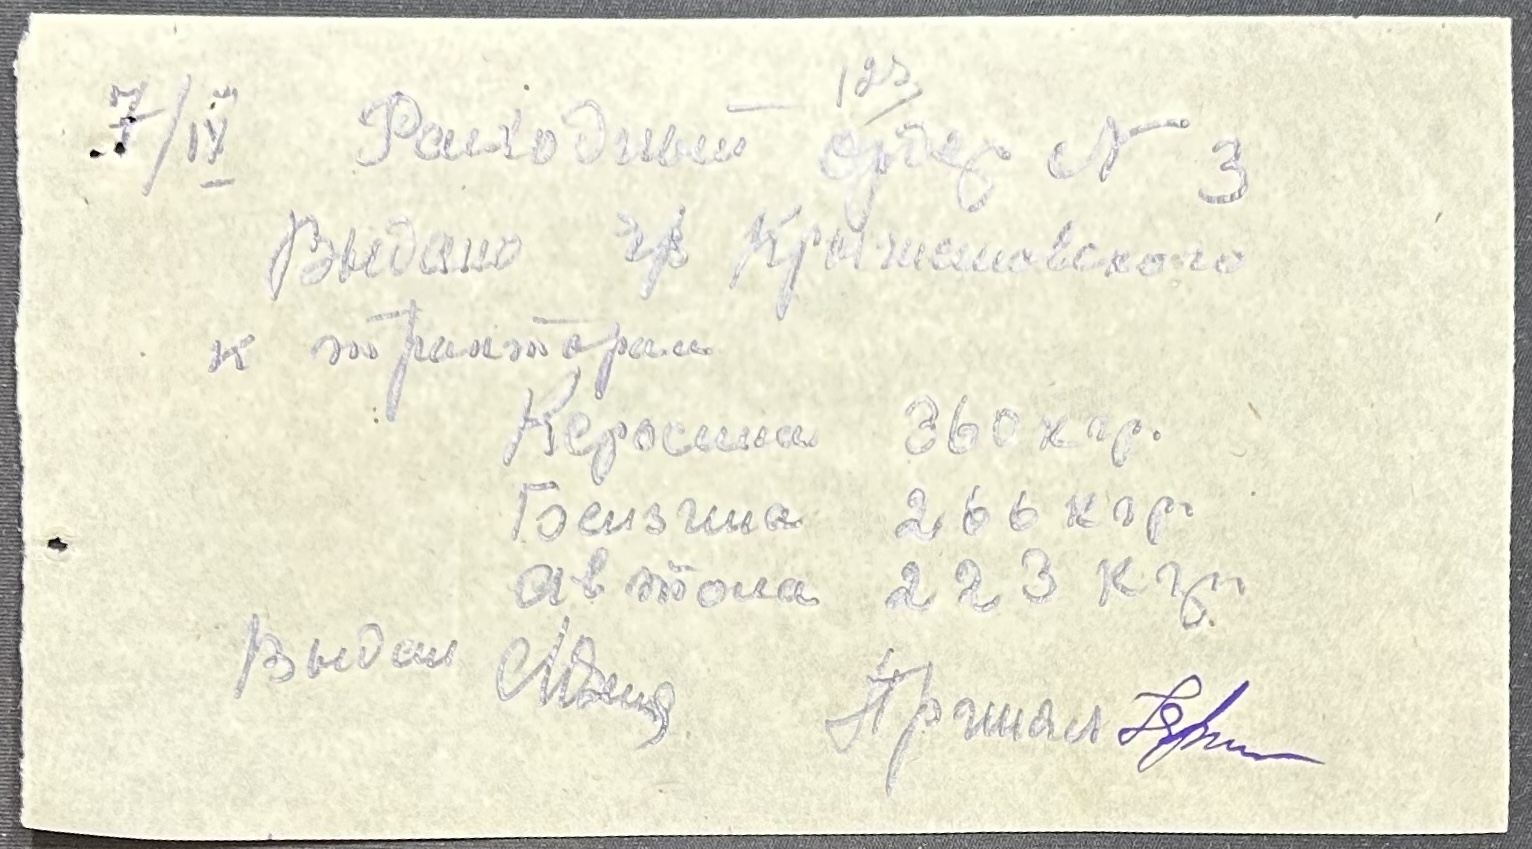 123
7/IV Расходный ордер № 3
Выдано гр Крыжановского
к тракторам
Керосина 360 кгр.
Бензина 266 кгр.
автола 223 кгр.
Выдал Принял